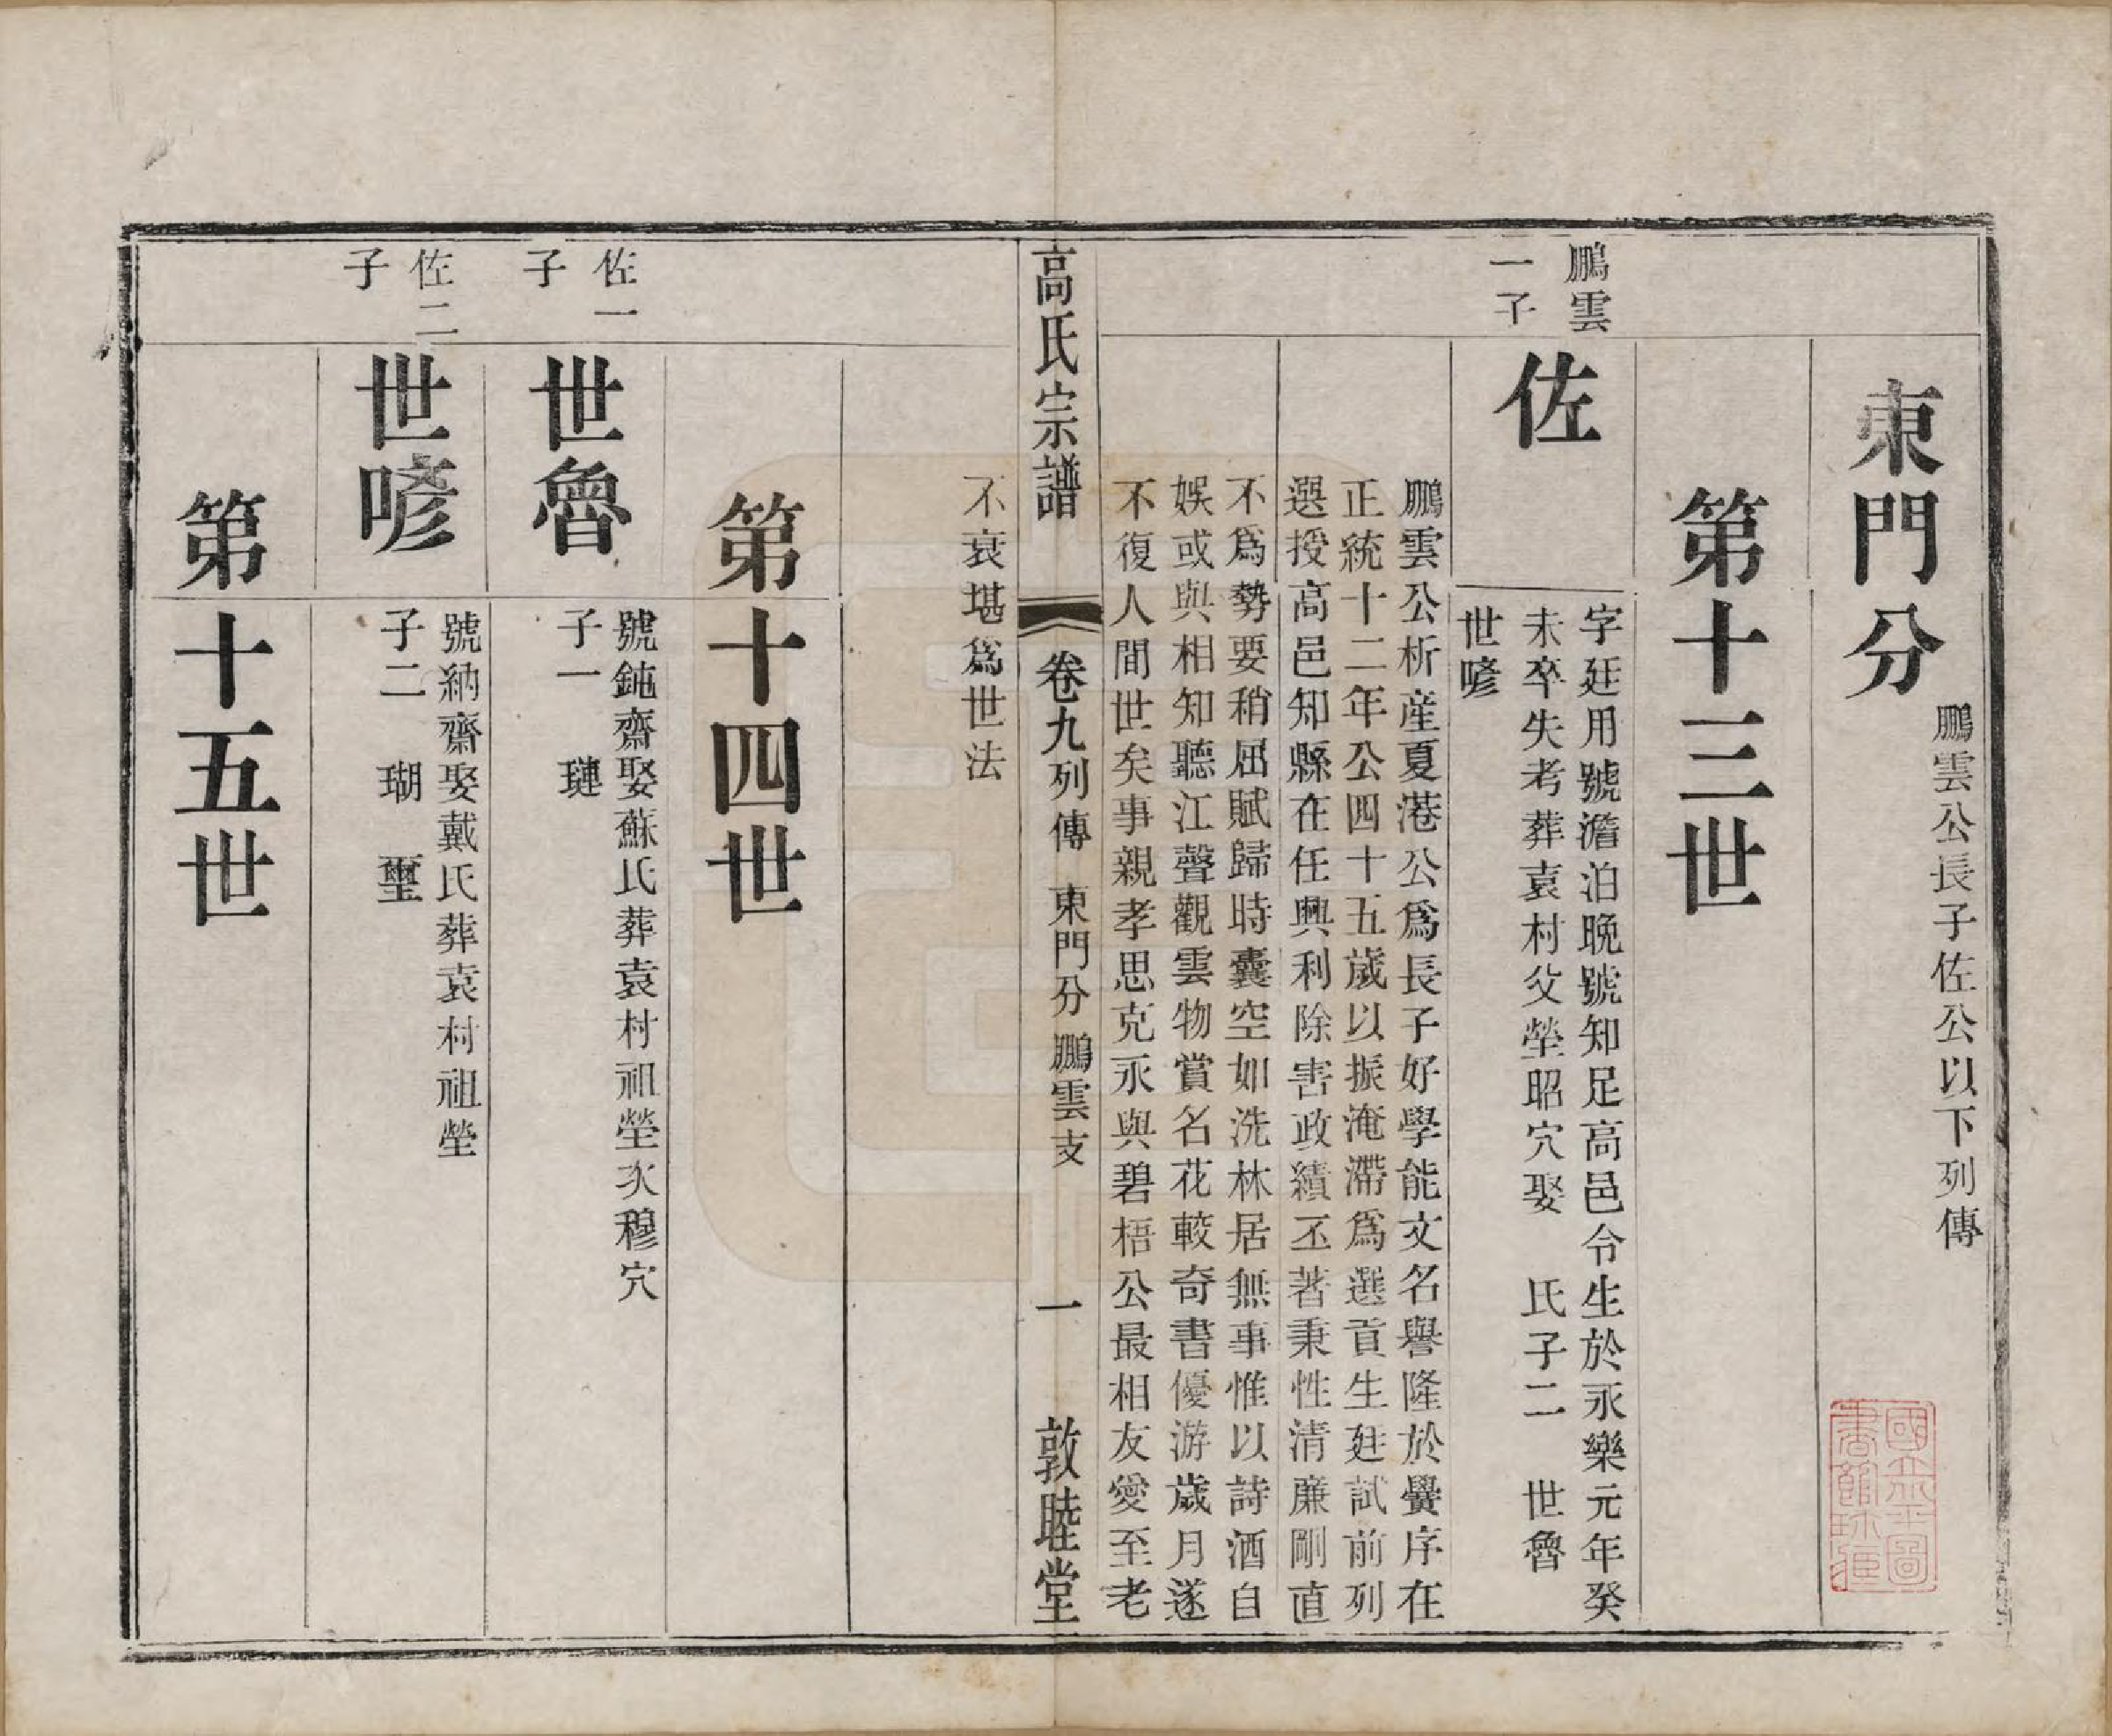 東門分
鵬雲公長子佐公以下列傳
第十三世
鵬雲
一子
佐
字廷用號澹泊晚號知足高邑令生於永樂元年癸
未卒失考葬袁村父塋昭穴娶　氏子二　世魯
世喭
鵬雲公析産夏港公爲長子好學能文名譽隆於黌序在
正統十二年公四十五歲以振淹滯爲選貢生廷試前列
選授高邑知縣在任興利除害政績丕著秉性清廉剛直
不爲勢要稍屈賦歸時囊空如洗林居無事惟以詩酒自
娛或與相知聽江聲觀雲物賞名花較奇書優游歲月遂
不復人間世矣事親孝思克永與碧梧公最相友愛至老
高氏宗譜
卷九列傳　東門分　鵬雲支
一
敦睦堂
不衰堪爲世法
第十四世
佐一
子
世魯
號鈍齋娶蘇氏葬袁村祖塋次穆穴
子一　璉
佐二
子
世喭
號納齋娶戴氏葬袁村祖塋
子二　瑚　璽
第十五世
國立北平圖
書館收藏